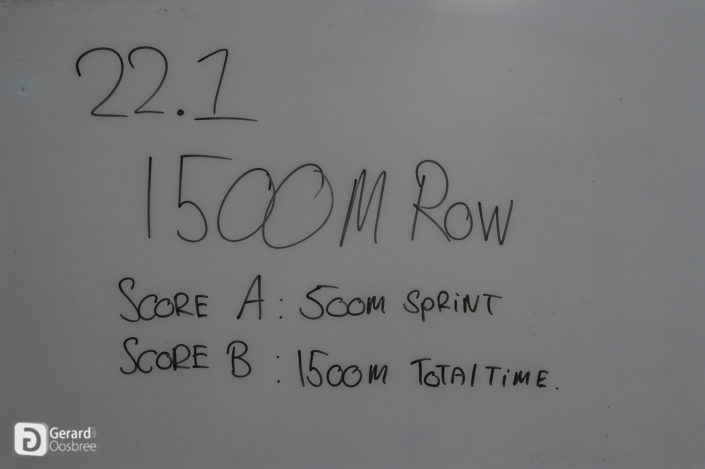 22.1
1500M ROW
SCORE A: 500M SPRINT
SCORE B: 1500M TOTAL TIME.
Gerard
Oosbree